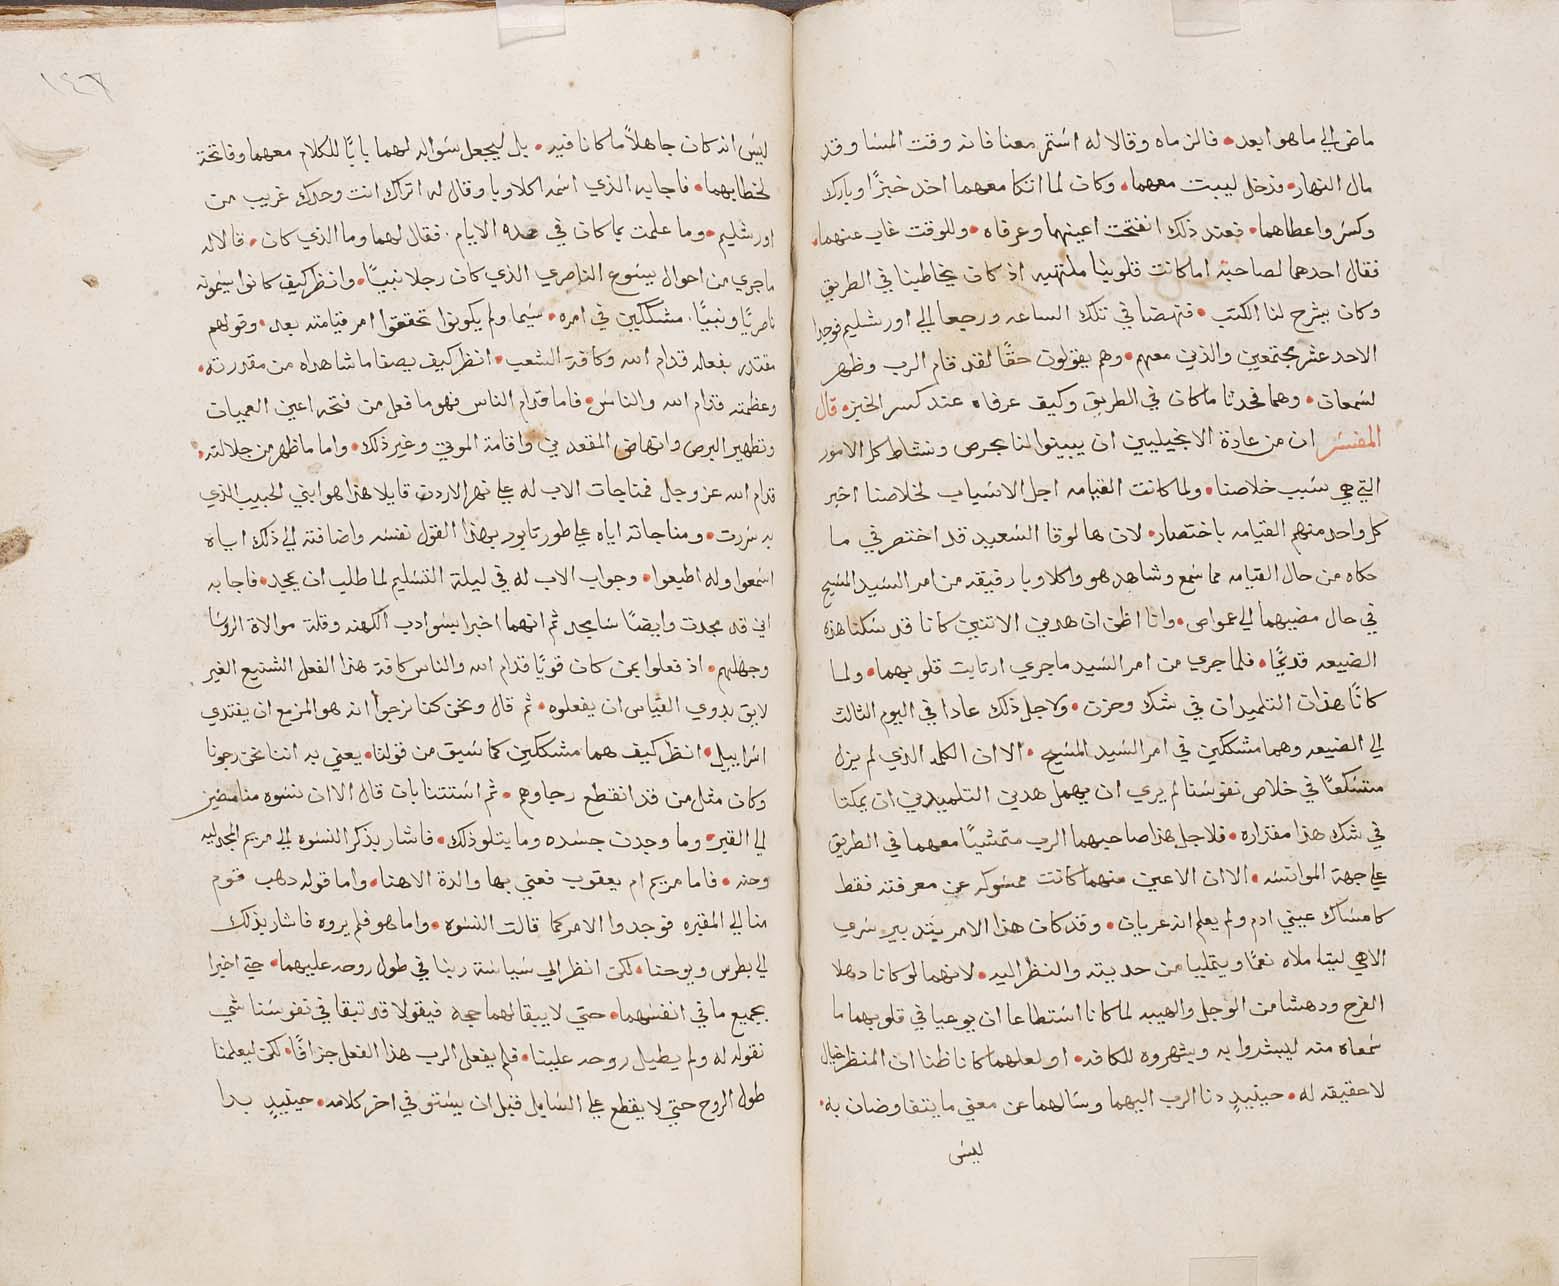 ماض الي ما هو ابعد • فالزماه وقالا له استمر معنا فانه وقت المسا وقد
مال النهار • فدخل ليبت معهما • وكان لما اتكا معهما اخد خبزًا وبارك
وكسر واعطاهما • فعند ذلك انفتحت اعينهما وعرفاه • وللوقت غاب عنهما •
فقال احدهما لصاحبه اما كانت قلوبنا ملتهبه اذ كان يخاطبنا في الطريق
وكان يشرح لنا الكتب • فنهضا في تلك الساعه ورجعا الي اورشليم فوجدا
الاحد عشر مجتمعين والذين معهم • وهم يقولون حقًا لقد قام الرب وظهر
لسمعان • وهما فحدثا ما كان في الطريق وكيف عرفاه عند كسر الخبز • قال
المفسر ان من عادة الانجيليين ان يبينوا لنا بحرص ونشاط كل الامور
التي هي سبب خلاصنا • ولما كانت القيامه اجل الاسباب لخلاصنا اخبر
كل واحد منهم القيامه باختصار • لان ها لوقا السعيد قد اختصر في ما
حكاه من حال القيامه مما سمع وشاهد هو واكلاوبا رفيقه من امر السيد المسيح
في حال مضيهما الي عمواص • وانا اظن ان هدين الاتنين كانا قد سكنا هذه
الضيعه قديمًا • فلما جري من امر السيد ما جري ارتابت قلوبهما • ولما
كانا هذان التلميدان في شك وحزن • ولاجل ذلك عادا في اليوم الثالث
الي الضيعه وهما مشككين في امر السيد المسيح • الا ان الكلمه الذي لم يزل
في خلاص نفوسنا لم يري ان يهمل هدين التلميدين ان يمكتا
في شك هذا مقداره • فلاجل هذا صاحبهما الرب متمشيًا معهما في الطريق
علي جهة الموانسه • الا ان الاعين منهما كانت ممسوكه عن معرفته فقط
كامساك عيني ادم ولم يعلم انه عريان • وقد كان هذا الامر بتدبير سري
الاهي ليتاملاه نعمًا ويتمليا من حديته والنظر اليه • لانهما لو كانا دهلا
الفرح ودهشا من الوجل والهيبه لما كانا استطاعا ان يوعيا في قلوبهما ما
سمعاه منه ليبشروا به ويشهروه للكافه • او لعلهما كانا ظنا ان المنظر خيال
لا حقيقه له • حينيدٍ دنا الرب اليهما وسالهما عن معني ما يتفاوضان به •
ليس
١٤٧
ليس انه كان جاهلاً ما كانا فيه • بل ليجعل سواله لهما بابًا للكلام معهما وفاتحة
لخطابهما • فاجابه الذي اسمه اكلاوبا وقال له اتراك انت وحدك غريب من
اورشليم • وما علمت بما كان في هده الايام • فقال لهما وما الذي كان • قالا له
ما جري من احوال يسوع الناصري الذي كان رجلا نبيًا • وانظر كيف كانوا يسمونه
ناصريًا ونبيًا • مشككين في امره • سيما ولم يكونوا تحققوا امر قيامته بعد • وقولهم
مقتدر بفعاله قدام الله وكافة الشعب • انظر كيف يصفا ما شاهداه من مقدرته •
وعظمته قدام الله والناس • فاما قدام الناس فهو ما فعل من فتحه اعين العميان
وتطهير البرص وانهاض المقعدين واقامة الموتي وغير ذلك • واما ما ظهر من جلالته •
قدام الله عز وجل فمناجات الاب له علي نهر الاردن قايلا هذا هو ابني الحبيب الذي
به سررت • ومناجاته اياه علي طور تابور بهذا القول نفسه واضافته الي ذلك اياه
اسمعوا وله اطيعوا • وجواب الاب له في ليلة التسليم لما طلب ان يمجد • فاجابه
اني قد مجدت وايضًا سامجد ثم انهما اخبرا بسو ادب الكهنه وقلة موالاة الروسا
وجهلهم • اذ فعلوا بمن كان قويًا قدام الله والناس كافة هذا الفعل الشنيع الغير
لايق بدوي القياس ان يفعلوه • ثم قال ونحن كنا نرجوا انه هو المزمع ان يفتدي
اسراييل • انظر كيف هما مشككين كما سبق من قولنا • يعني به اننا نحن رجونا
وكان مثل من قد انقطع رجاوهم • ثم استتنا بان قال الا ان نسوه منا مضين
الي القبر • وما وجدن جسده وما يتلو ذلك • فاشار بذكر النسوه الي مريم المجدليه
وحنه • فاما مريم ام يعقوب فعني بها والدة الاهنا • واما قوله دهب قوم
منا الي المقبره فوجدوا الامر كما قالت النسوه • واما هو فلم يروه فاشار بذلك
الي بطرس ويوحنا • لكن انظر الي سياسة ربنا في طول روحه عليهما • حتي اخبرا
بجميع ما في انفسهما • حتي لا يبقا لهما حجه فيقولا قد تبقا في نفوسنا شي
نقوله له ولم يطيل روحه علينا • فلم يفعل الرب هذا الفعل جزافًا • لكن ليعلمنا
طول الروح حتي لا يقطع علي السايل قبل ان يستوفي اخر كلامه • حينيدٍ بدا